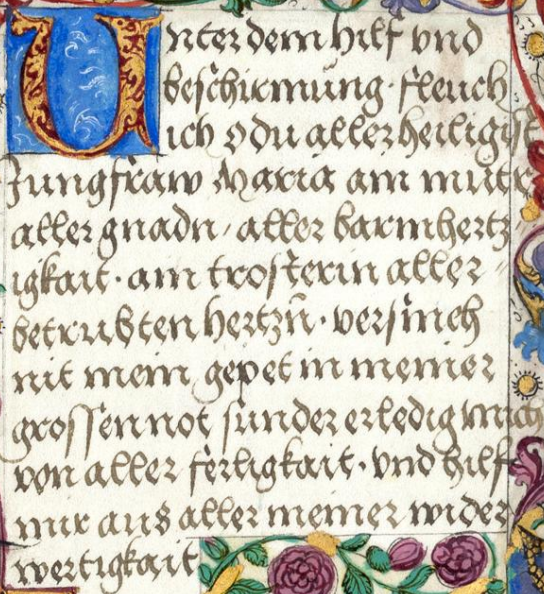 Unter dem hilf vnd
beschirmung fleuch
ich o du aller heiligist
Jungfraw Maria ain muter
aller gnadn, aller barmhertz
igkait · ain trosterin aller
betrubten hertzn̄ · versmeh
nit mein gepet in meiner
grossen not sunder erledig mich
von aller ferligkait · vnd hilf
mir aus aller meiner wider
wertigkait